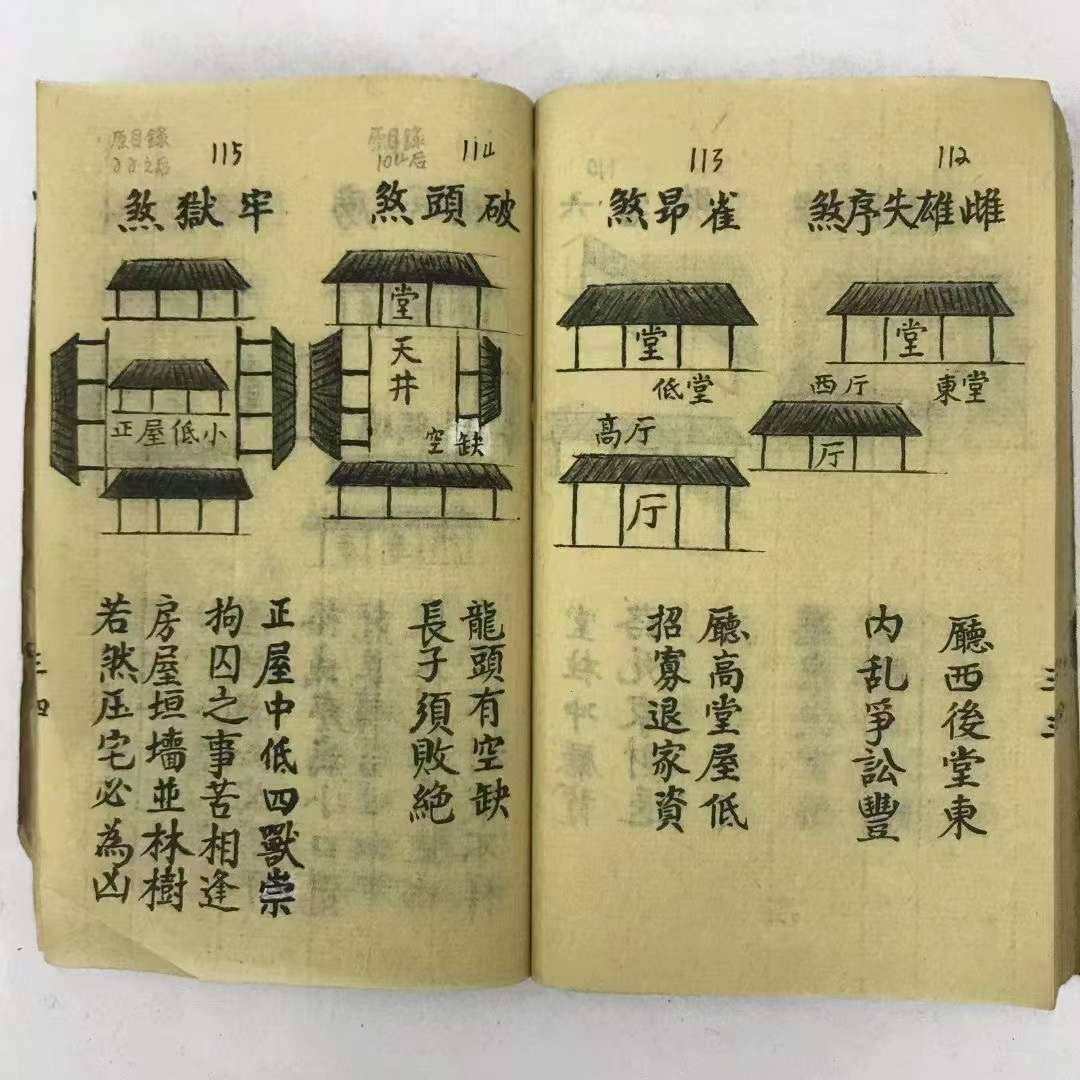 112
雌雄失序煞
堂
西厅
東堂
厅
廳西後堂東
内乱爭訟豐
三三
113
雀昂煞
堂
低堂
高厅
厅
廳高堂屋低
招寡退家資
原目錄
104后
114
破頭煞
堂
天井
空缺
龍頭有空缺
長子須敗絶
原目錄
115
牢獄煞
正屋低小
正屋中低四獸崇
拘囚之事苦相逢
房屋垣墻並林樹
若然压宅必為凶
三四